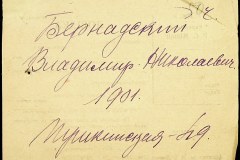 Бернадский
Владимир Николаевич.
1901.
Пушкинская - 49.